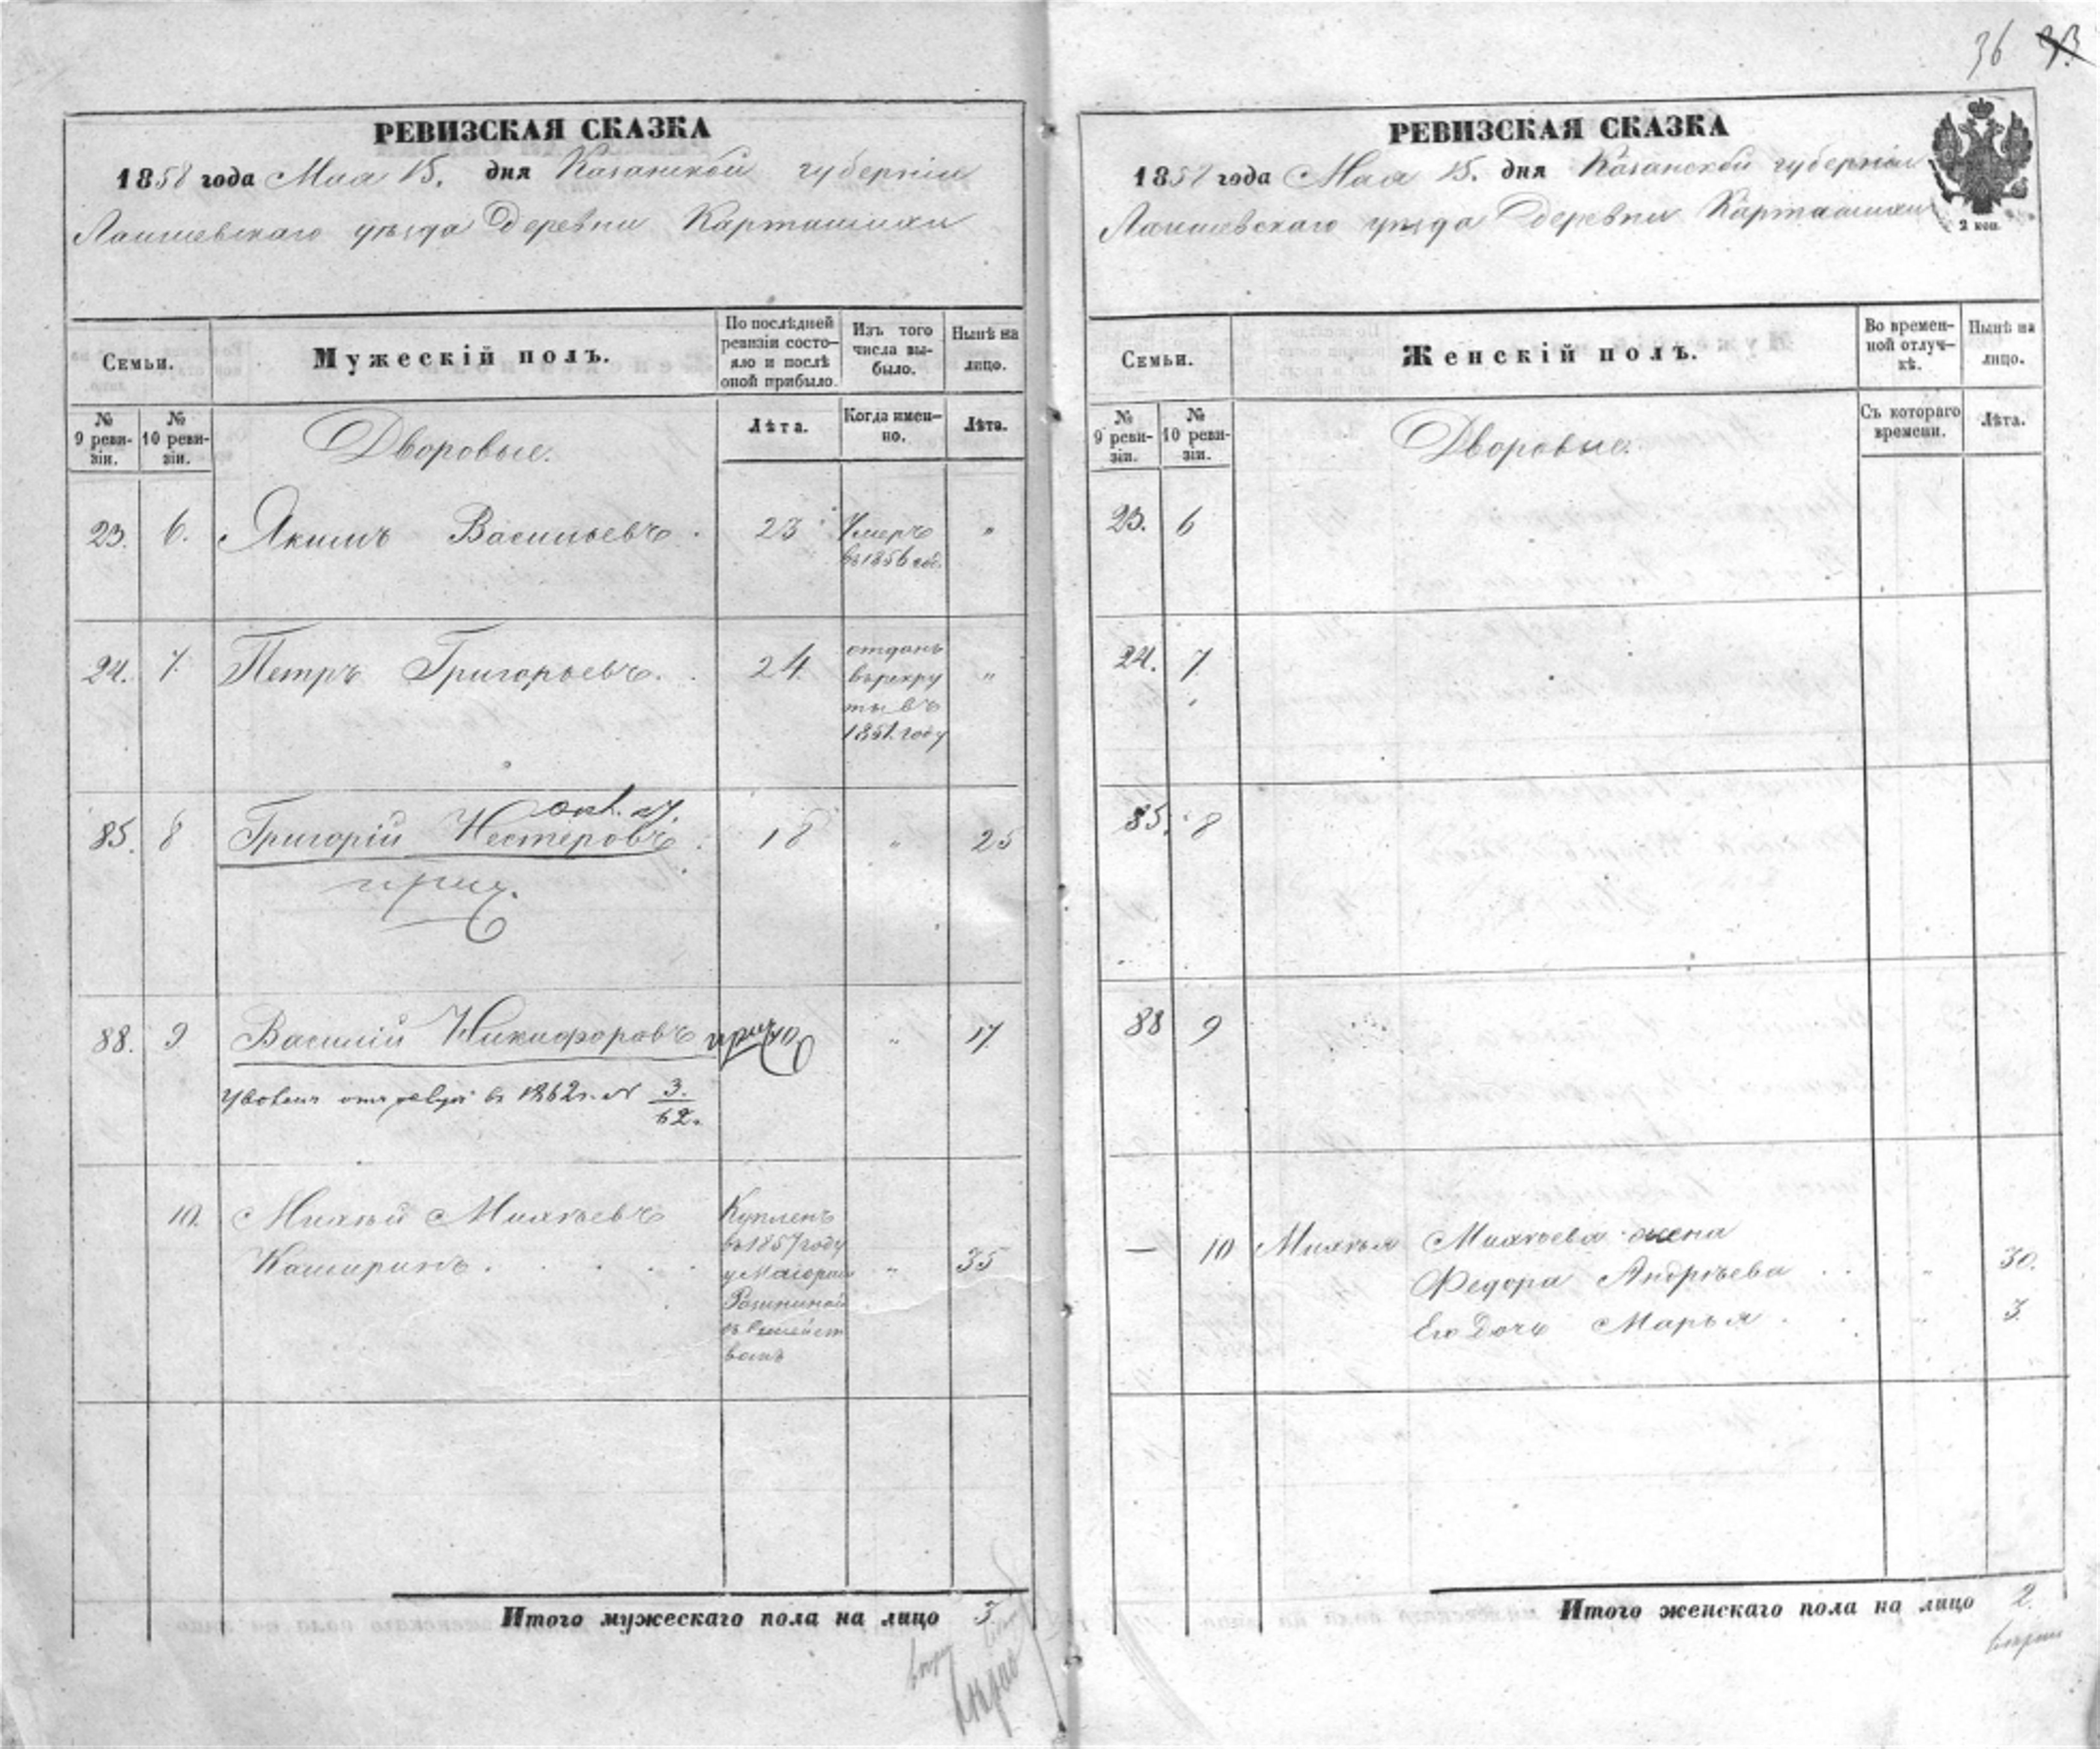 36
РЕВИЗСКАЯ СКАЗКА
1858 года Мая 15. дня Казанской губернiи
Лаишевскаго уѣзда Деревни Карташихи
Семьи.
Мужескiй полъ.
По послѣдней
ревизiи состо-
яло и послѣ
оной прибыло.
Изъ того
числа вы-
было.
Нынѣ на
лицо.
№
9 реви-
зiи.
№
10 реви-
зiи.
Дворовые.
Лѣта.
Когда имен-
но.
Лѣта.
23. 6. Якимъ Васильевъ . 23 Умеръ "
въ 1856 год.
24. 7. Петръ Григорьевъ. . 24. отданъ "
въ рекру
ты въ
1851. году
85. 8 Григорiй Нестеровъ . 18 " 25
88. 9 Василiй Никифоровъ 10 " 17
въ 1862 г. № 3.
62.
10. Михѣй Михѣевъ Купленъ
Каширинъ . . . . . " 35
въ 1857 году
у Маiорши
въ Семейст
вомъ
Итого мужескаго пола на лицо 3
вѣрно
РЕВИЗСКАЯ СКАЗКА
1858 года Мая 15. дня Казанской губернiи
Лаишевскаго уѣзда Деревни Карташихи
2 коп.
Семьи.
Женскiй полъ.
Во времен-
ной отлуч-
кѣ.
Нынѣ на
лицо.
№
9 реви-
зiи.
№
10 реви-
зiи.
Дворовые.
Съ котораго
времени.
Лѣта.
23. 6
24. 7
85. 8
88 9
— 10 Михѣя Михѣева жена
Федора Андрѣева . . " 30.
Его Дочь Марья . . " 3.
Итого женскаго пола на лицо 2.
вѣрно